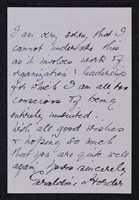 I am very sorry that I
cannot undertake this
as it involves work of
organization & leadership
for which I am all too
conscious of being
entirely unsuited.
With all good wishes
& hoping so much
that you are quite well
again. Yours sincerely,